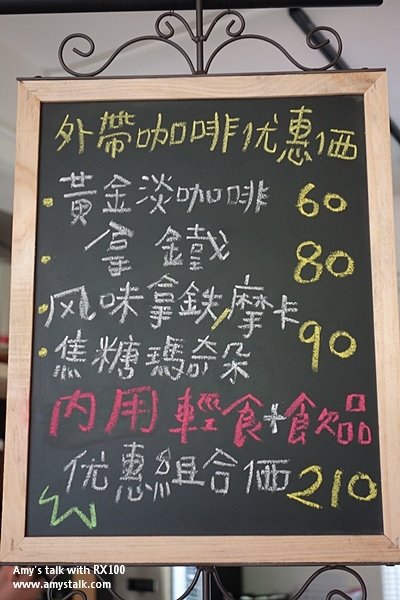 外帶咖啡优惠価
黃金淡咖啡 60
拿鐵 80
风味拿鉄/摩卡
焦糖瑪奇朵 90
內用輕食+飲品
优惠組合価 210
Amy's talk with RX100
www.amystalk.com